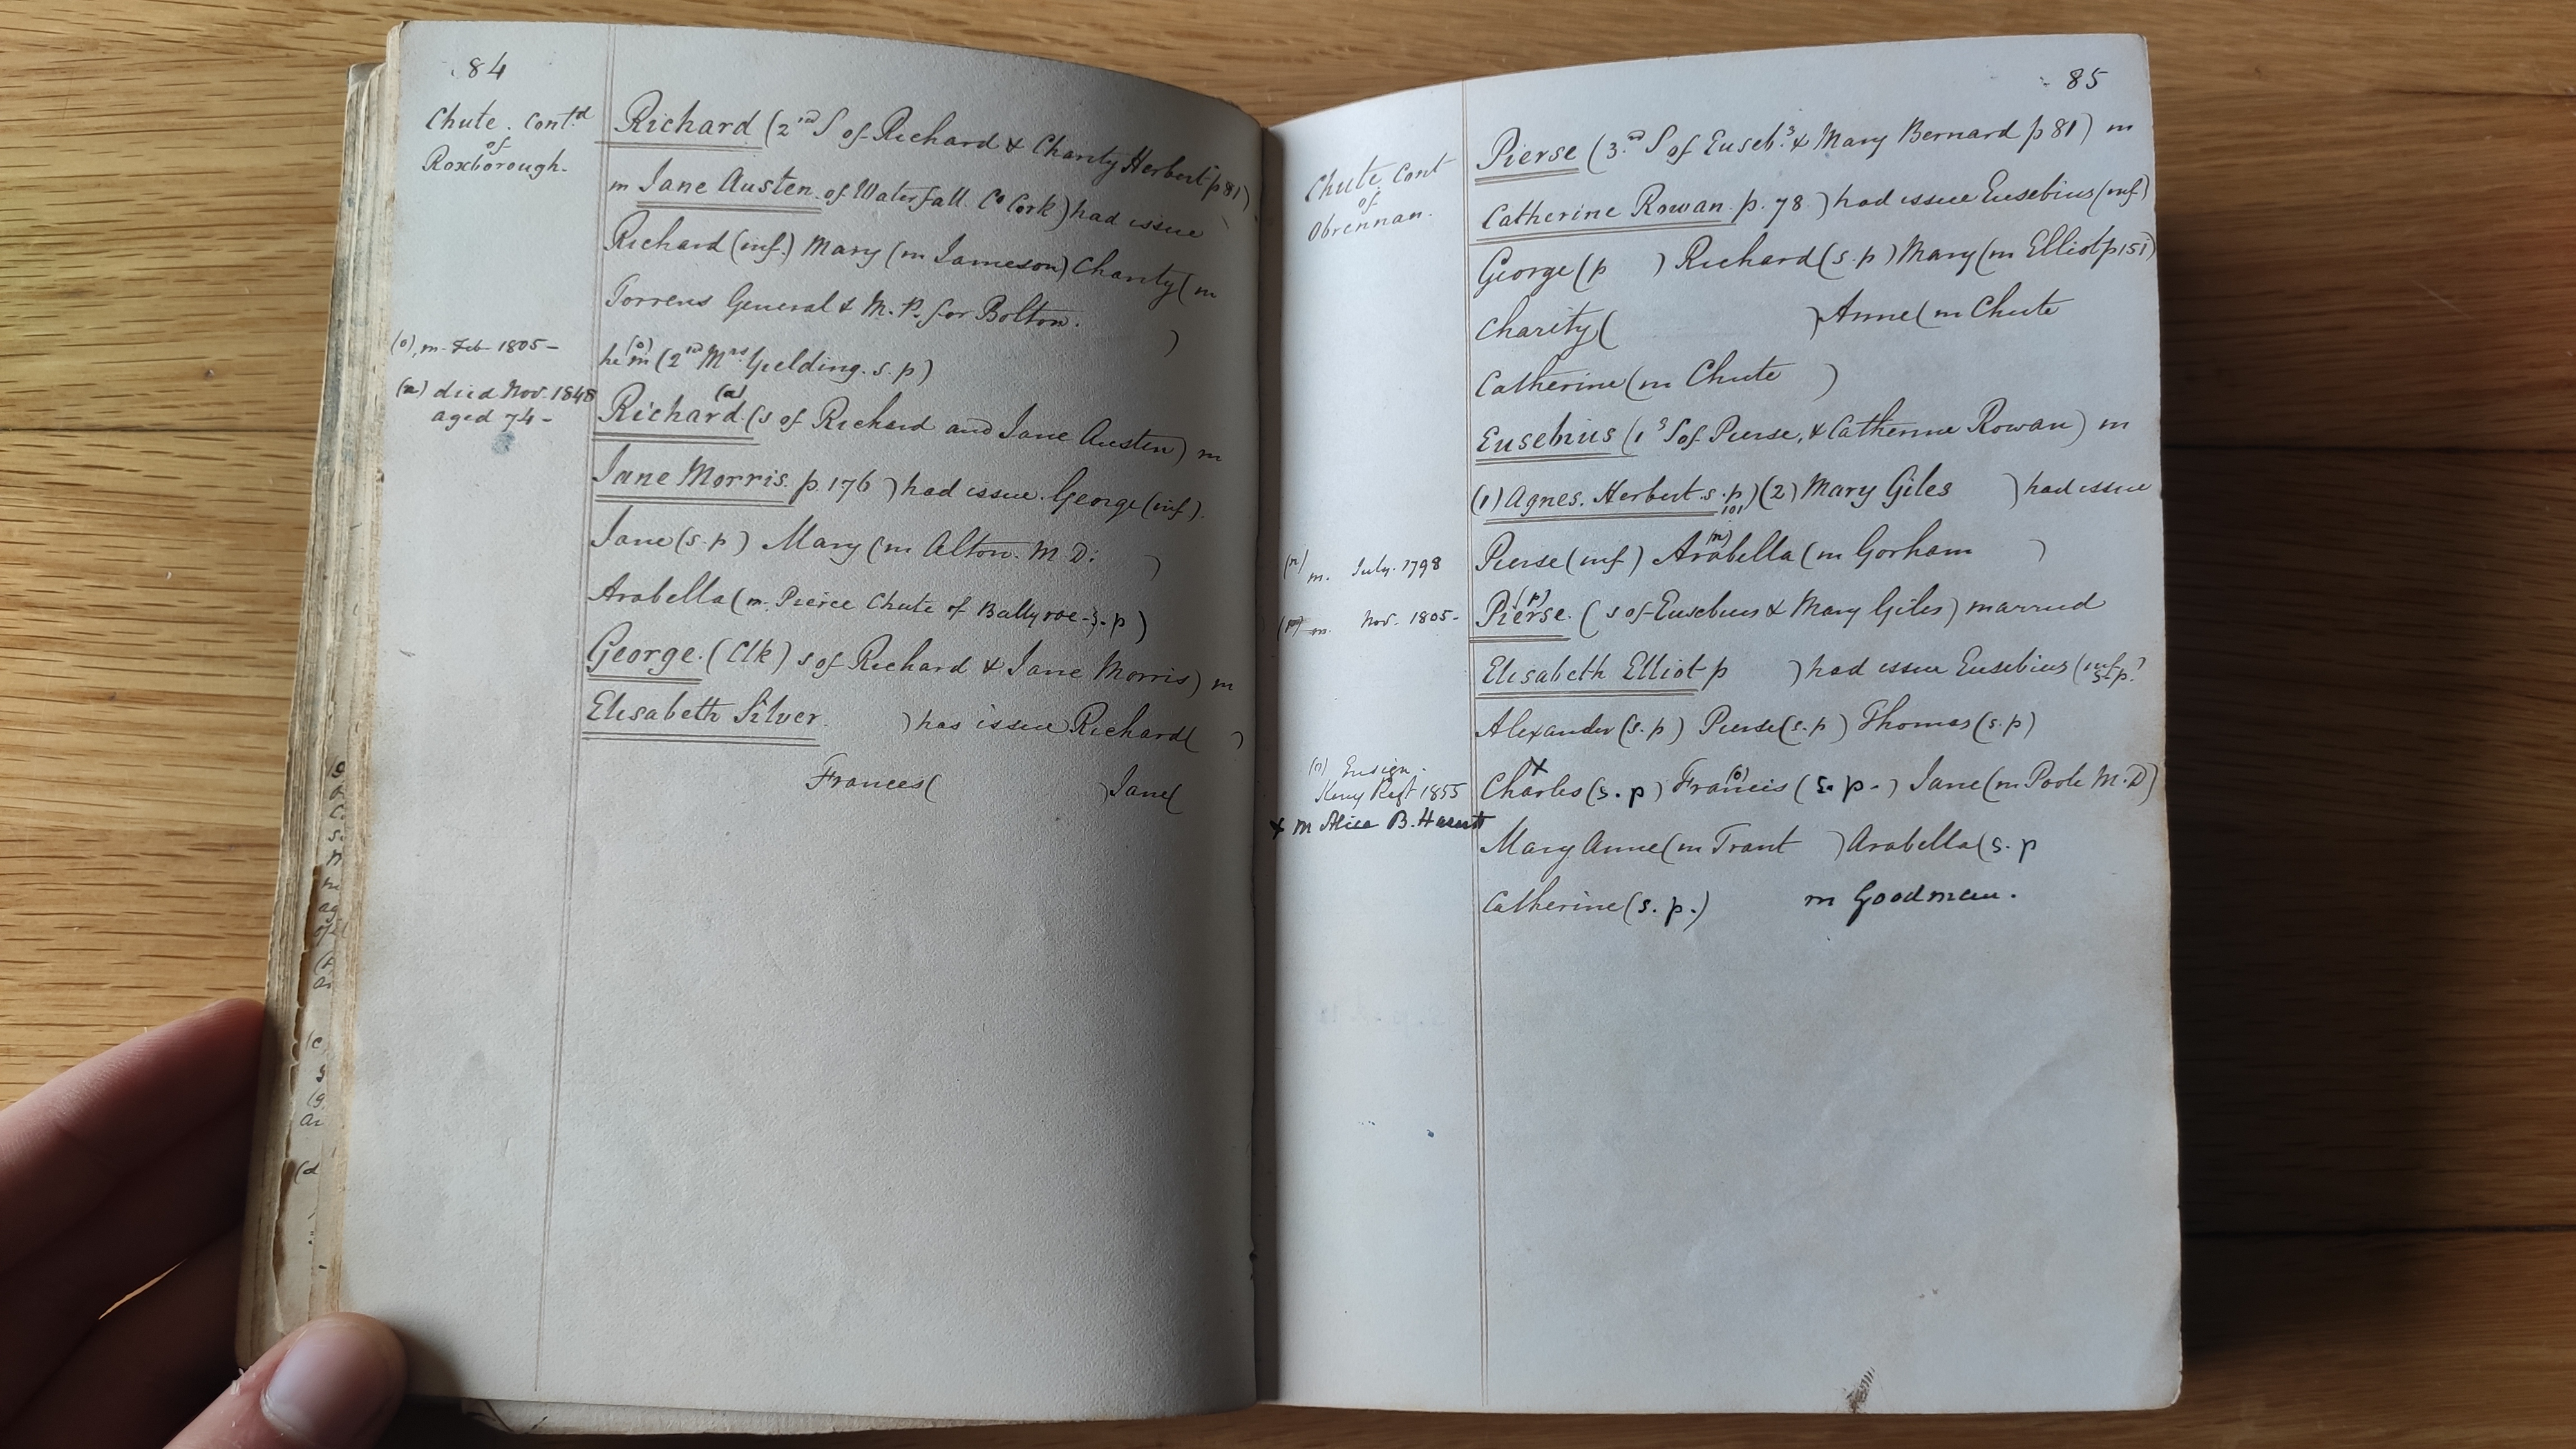 84
Chute. Contd
of
Roxborough.
Richard (2nd S of Richard & Charity Herbert p 81)
m Jane Austen of Waterfall Co Cork) had issue
Richard (inf.) Mary (m Jameson) Charity (m
Torrens General & M.P. for Bolton. )
(o) m. Feb 1805 -
he (o) m (2nd Mrs Yielding. s.p)
(a) died Nov. 1848
aged 74 -
Richard (a) (s of Richard and Jane Austen) m
Jane Morris. p. 176 ) had issue. George (inf).
Jane (s.p) Mary (m Alton. M.D. )
Arabella (m. Pierce Chute of Ballyroe - s.p)
George. (Clk) s of Richard & Jane Morris) m
Elisabeth Silver. ) has issue Richard ( )
Frances ( ) Jane (
85
Chute. Cont
of
Obrennan.
Pierse (3rd S of Eusebs & Mary Bernard p 81) m
Catherine Rowan p. 78 ) had issue Eusebius (inf)
George (p ) Richard (s.p) Mary (m Elliot p 151)
Charity ( ) Anne (m Chute
Catherine (m Chute )
Eusebius (1s S of Pierse, & Catherine Rowan) m
(1) Agnes. Herbert. s.p) (2) Mary Giles ) had issue
101
(n) m. July. 1798
Pierse (inf) Arabella (n) (m Gorham )
m. Nov. 1805 -
Pierse. (p) ( s of Eusebius & Mary Giles) married
Elisabeth Elliot p ) had issue Eusebius (inf s.p.)
Alexander (s.p) Pierse (s.p) Thomas (s.p)
(o) Ensign.
Kerry Regt 1855
Charles x (s.p) Francis (o) (s.p.) Jane (m Poole M.D)
x m Alice B.
Mary Anne (m Trant ) Arabella (s.p
Catherine (s.p.) m Goodman.